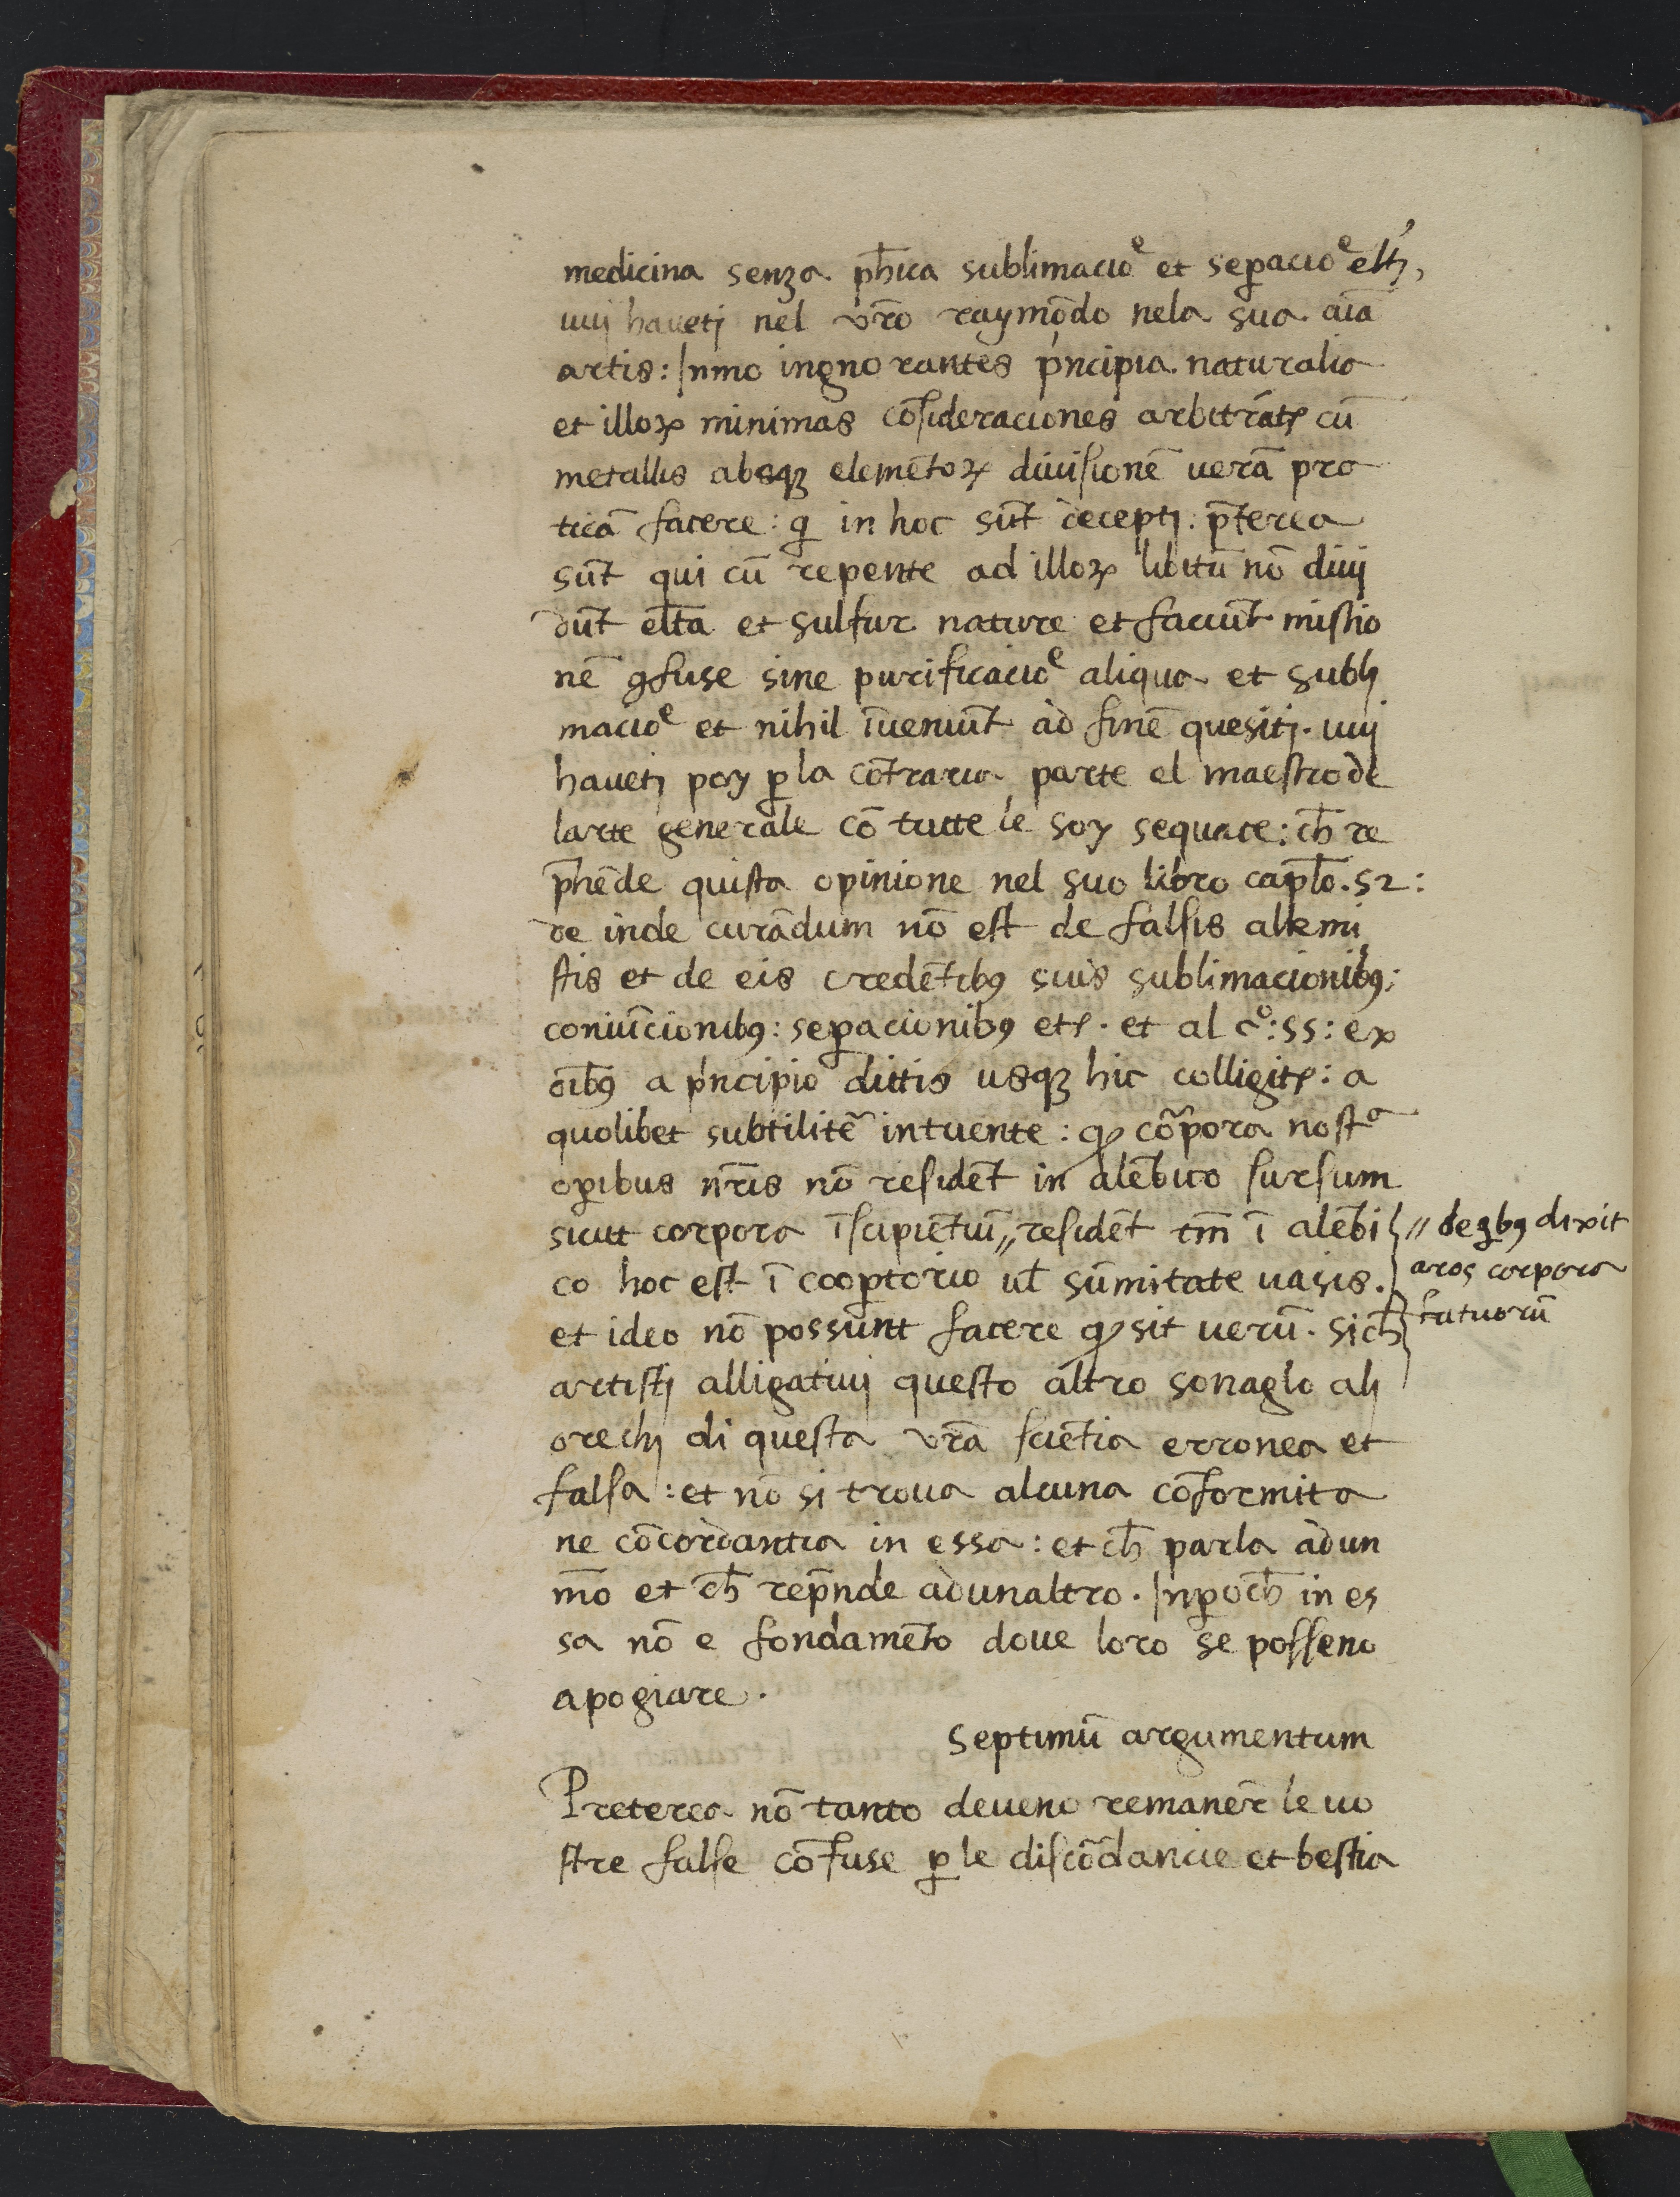 medicina senza ph̄ica sublimacioᵉ et sep̱acioᵉ eltj,
uuj hauetj nel vr̄o raymōdo nela sua aīa
artis: Inmo ingnorantes pͥncipia naturalia
et illoꝝ minimas cōsideraciones arbitrāt᷑ cū
metallis absqꝫ elemētoꝝ diuisionē uerā pra
ticā facere: q̱ in hoc sūt deceptj. p̄terea
sūt qui cū repente ad illoꝝ libitū nō diuj
dūt elt̄a et sulfur nature et faciūt mistio
nē ꝯfuse sine purificacioᵉ aliqua et sublj
macioᵉ et nihil īueniūt ad finē quesitj. uuj
hauetj poy ꝑ la cōtraria parte el maestro de
larte generale cō tutte le soy sequace: ch̄ re
p̄hēde quista opinione nel suo libro capłto. 52:
de inde curādum nō est de falsis alkemi
stis et de eis credētibꝯ suis sublimacionibꝯ:
coniūcionibꝯ: seꝑacionibꝯ etc. et al c°: 55: ex
oībꝯ a pͥncipio dittis usqꝫ hic colligit᷑: a
quolibet subtilitē intuente: ꝙ cōrpora nostᵃ
oꝑibus nr̄is nō residēt in alēbico sursum
sicut corpora īsipiētiū // residēt tm̄ ī alēbi
co hoc est ī cooꝑtorio ul̄ sūmitate uasis.
et ideo nō possunt facere ꝙ sit uerū. si ch̄
artistj alligatiuj questo altro sonaglo alj
orechj di questa vr̄a sciētia erronea et
falsa: et nō si troua alcuna cōformita
ne cōcordantia in essa: et ch̄ parla ad un
mō et ch̄ rep̄nde ad unaltro. Inꝑoch̄ in es
sa nō e fondamēto doue loro se posseno
apogiare.
// de qbꝯ dixit
aros corpora
fatuorū
Septimū argumentum
Preterea nō tanto deueno remanēr le uo
stre false cōfuse ꝑ le discōdancie et bestia